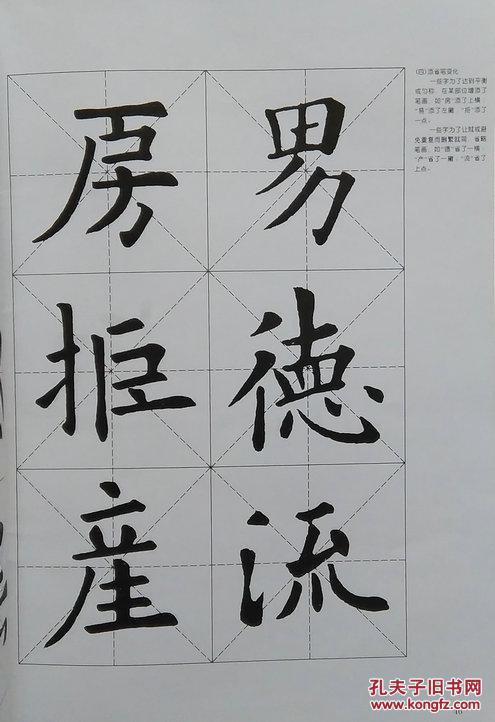 (四)添省笔变化
一些字为了达到平衡
或匀称，在某部位增添了
笔画，如“房”添了上横，
“易”添了左撇，“拒”添了
一点。
一些字为了让就或避
免重复而删繁就简，省略
笔画，如“德”省了一横，
“产”省了一撇，“流”省了
上点。
男
德
流
房
拒
産
46
孔夫子旧书网
www.kongfz.com